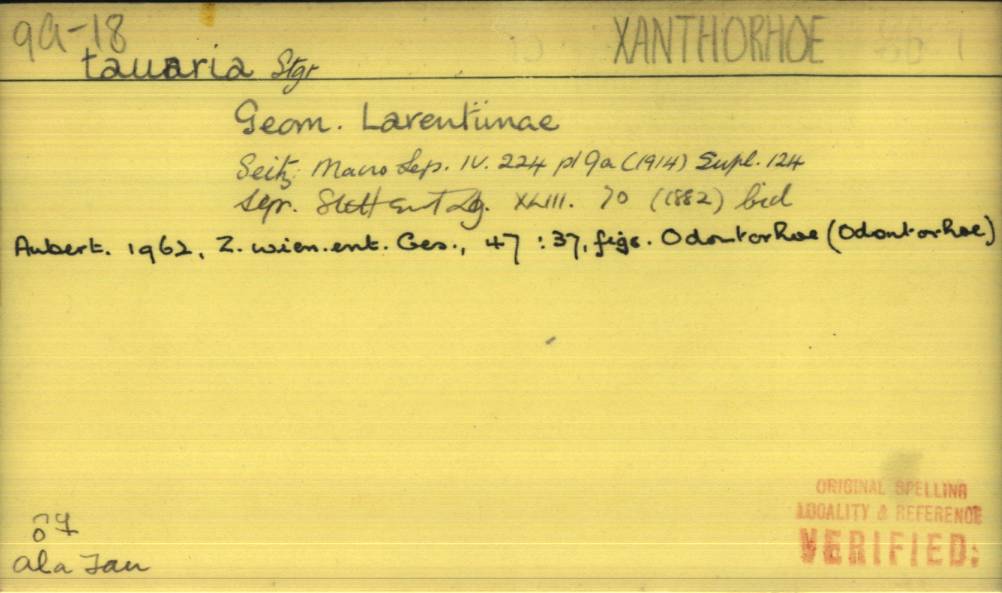 9a-18
XANTHORHOE
tauaria Stgr
Geom. Larentiinae
Seitz Macro Lep. IV. 224 pl 9a (1914) Supl. 124
Stett Ent Zg. XLIII. 70 (1882)
Aubert. 1962, Z. wien. ent. Ges., 47 : 37, figs. Odontorhoe (Odontorhoe)
ORIGINAL SPELLING
LOCALITY & REFERENCE
VERIFIED:
♂ ♀
Ala Tau